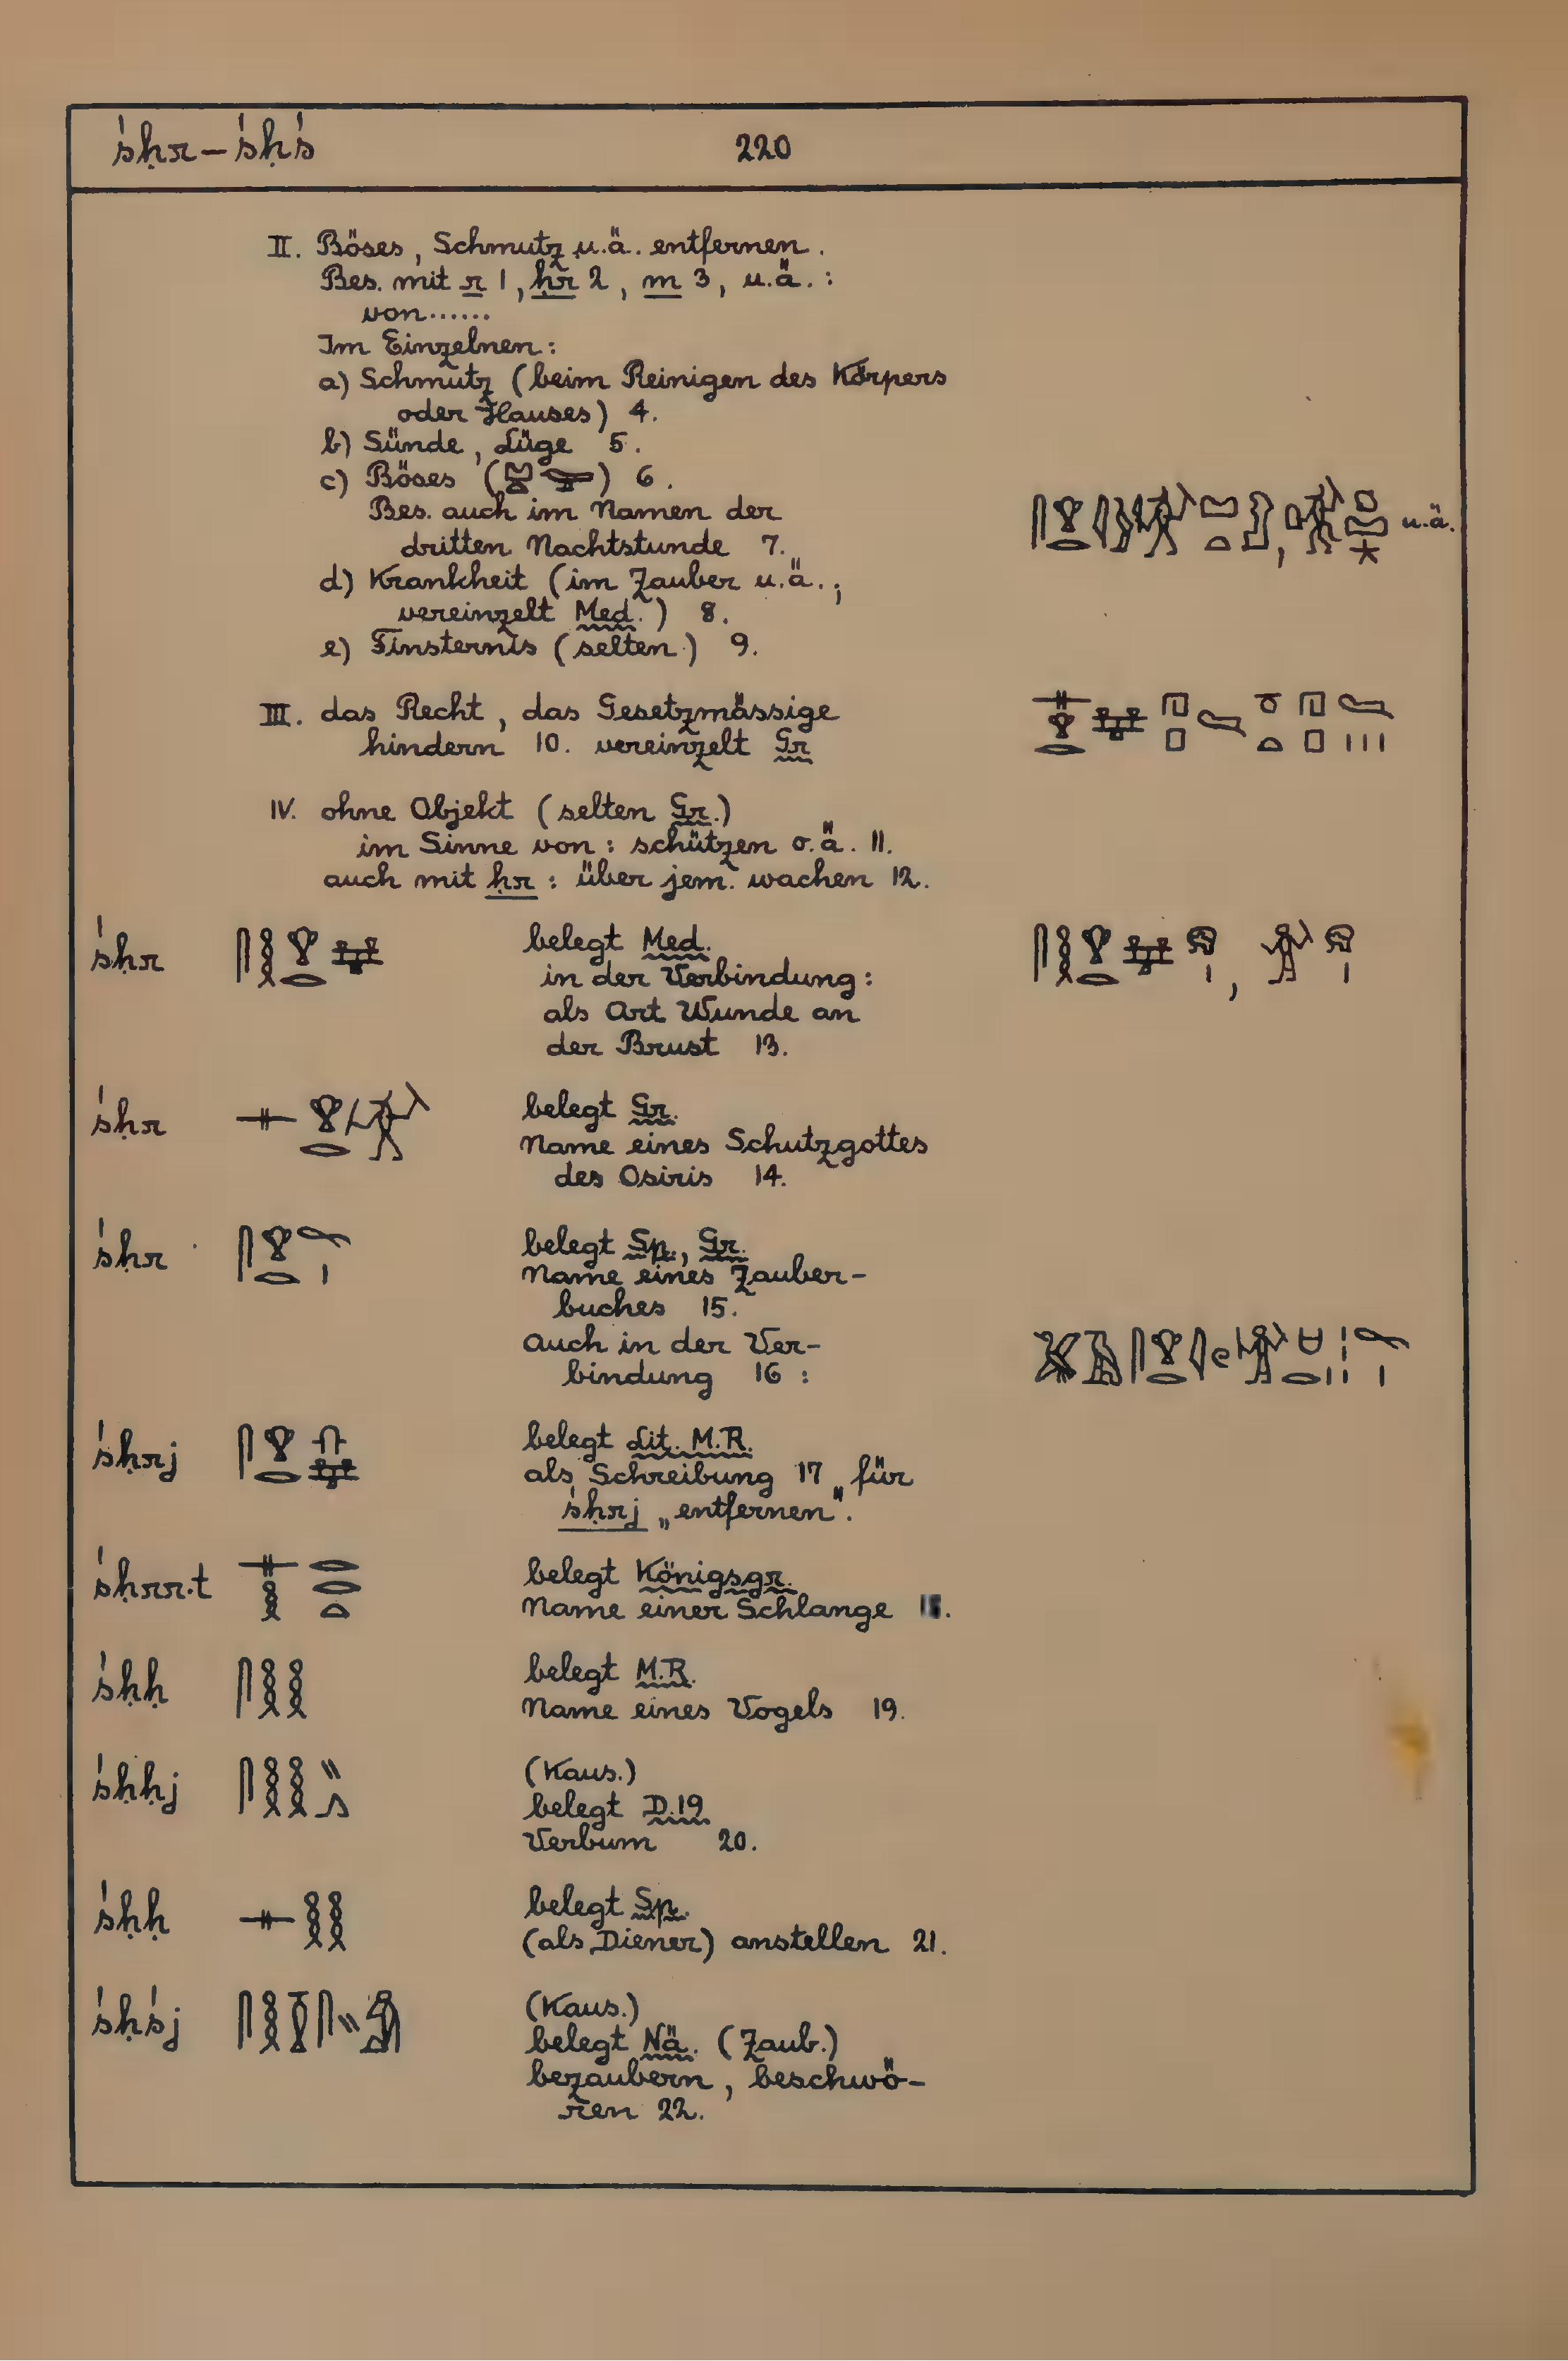 śḥr – śḥś 220
II. Böses, Schmutz u.ä. entfernen.
Bes. mit r 1, ḥr 2, m 3, u.ä.:
von......
Im Einzelnen:
a) Schmutz (beim Reinigen des Körpers
oder Hauses) 4.
b) Sünde, Lüge 5.
c) Böses ( ) 6.
Bes. auch im Namen der
dritten Nachtstunde 7. u.ä.
d) Krankheit (im Zauber u.ä.;
vereinzelt Med.) 8.
e) Finsternis (selten) 9.
III. das Recht, das Gesetzmässige
hindern 10. vereinzelt Gr
IV. ohne Objekt (selten Gr.)
im Sinne von: schützen o.ä. 11.
auch mit ḥr: über jem. wachen 12.
śḥr belegt Med.
in der Verbindung:
als Art Wunde an
der Brust 13.
śḥr belegt Gr.
Name eines Schutzgottes
des Osiris 14.
śḥr belegt Sp., Gr.
Name eines Zauber-
buches 15.
Auch in der Ver-
bindung 16:
śḥrj belegt Lit. M.R.
als Schreibung 17 für
śḥrj „entfernen".
śḥrr.t belegt Königsgr.
Name einer Schlange 18.
śḥḥ belegt M.R.
Name eines Vogels 19.
śḥḥj (Kaus.)
belegt D.19
Verbum 20.
śḥḥ belegt Sp.
(als Diener) anstellen 21.
śḥśj (Kaus.)
belegt Nä. (Zaub.)
bezaubern, beschwö-
ren 22.